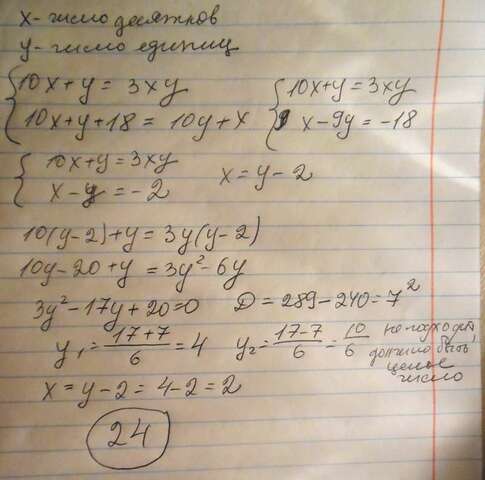 x - число десятков
y - число единиц
{10x + y = 3xy {10x + y = 3xy
{10x + y + 18 = 10y + x {9x - 9y = -18
{10x + y = 3xy
{x - y = -2 x = y - 2
10(y - 2) + y = 3y(y - 2)
10y - 20 + y = 3y² - 6y
3y² - 17y + 20 = 0 D = 289 - 240 = 7²
y₁ = (17 + 7)/6 = 4 y₂ = (17 - 7)/6 = 10/6 не подходит, должно быть целое число
x = y - 2 = 4 - 2 = 2
24